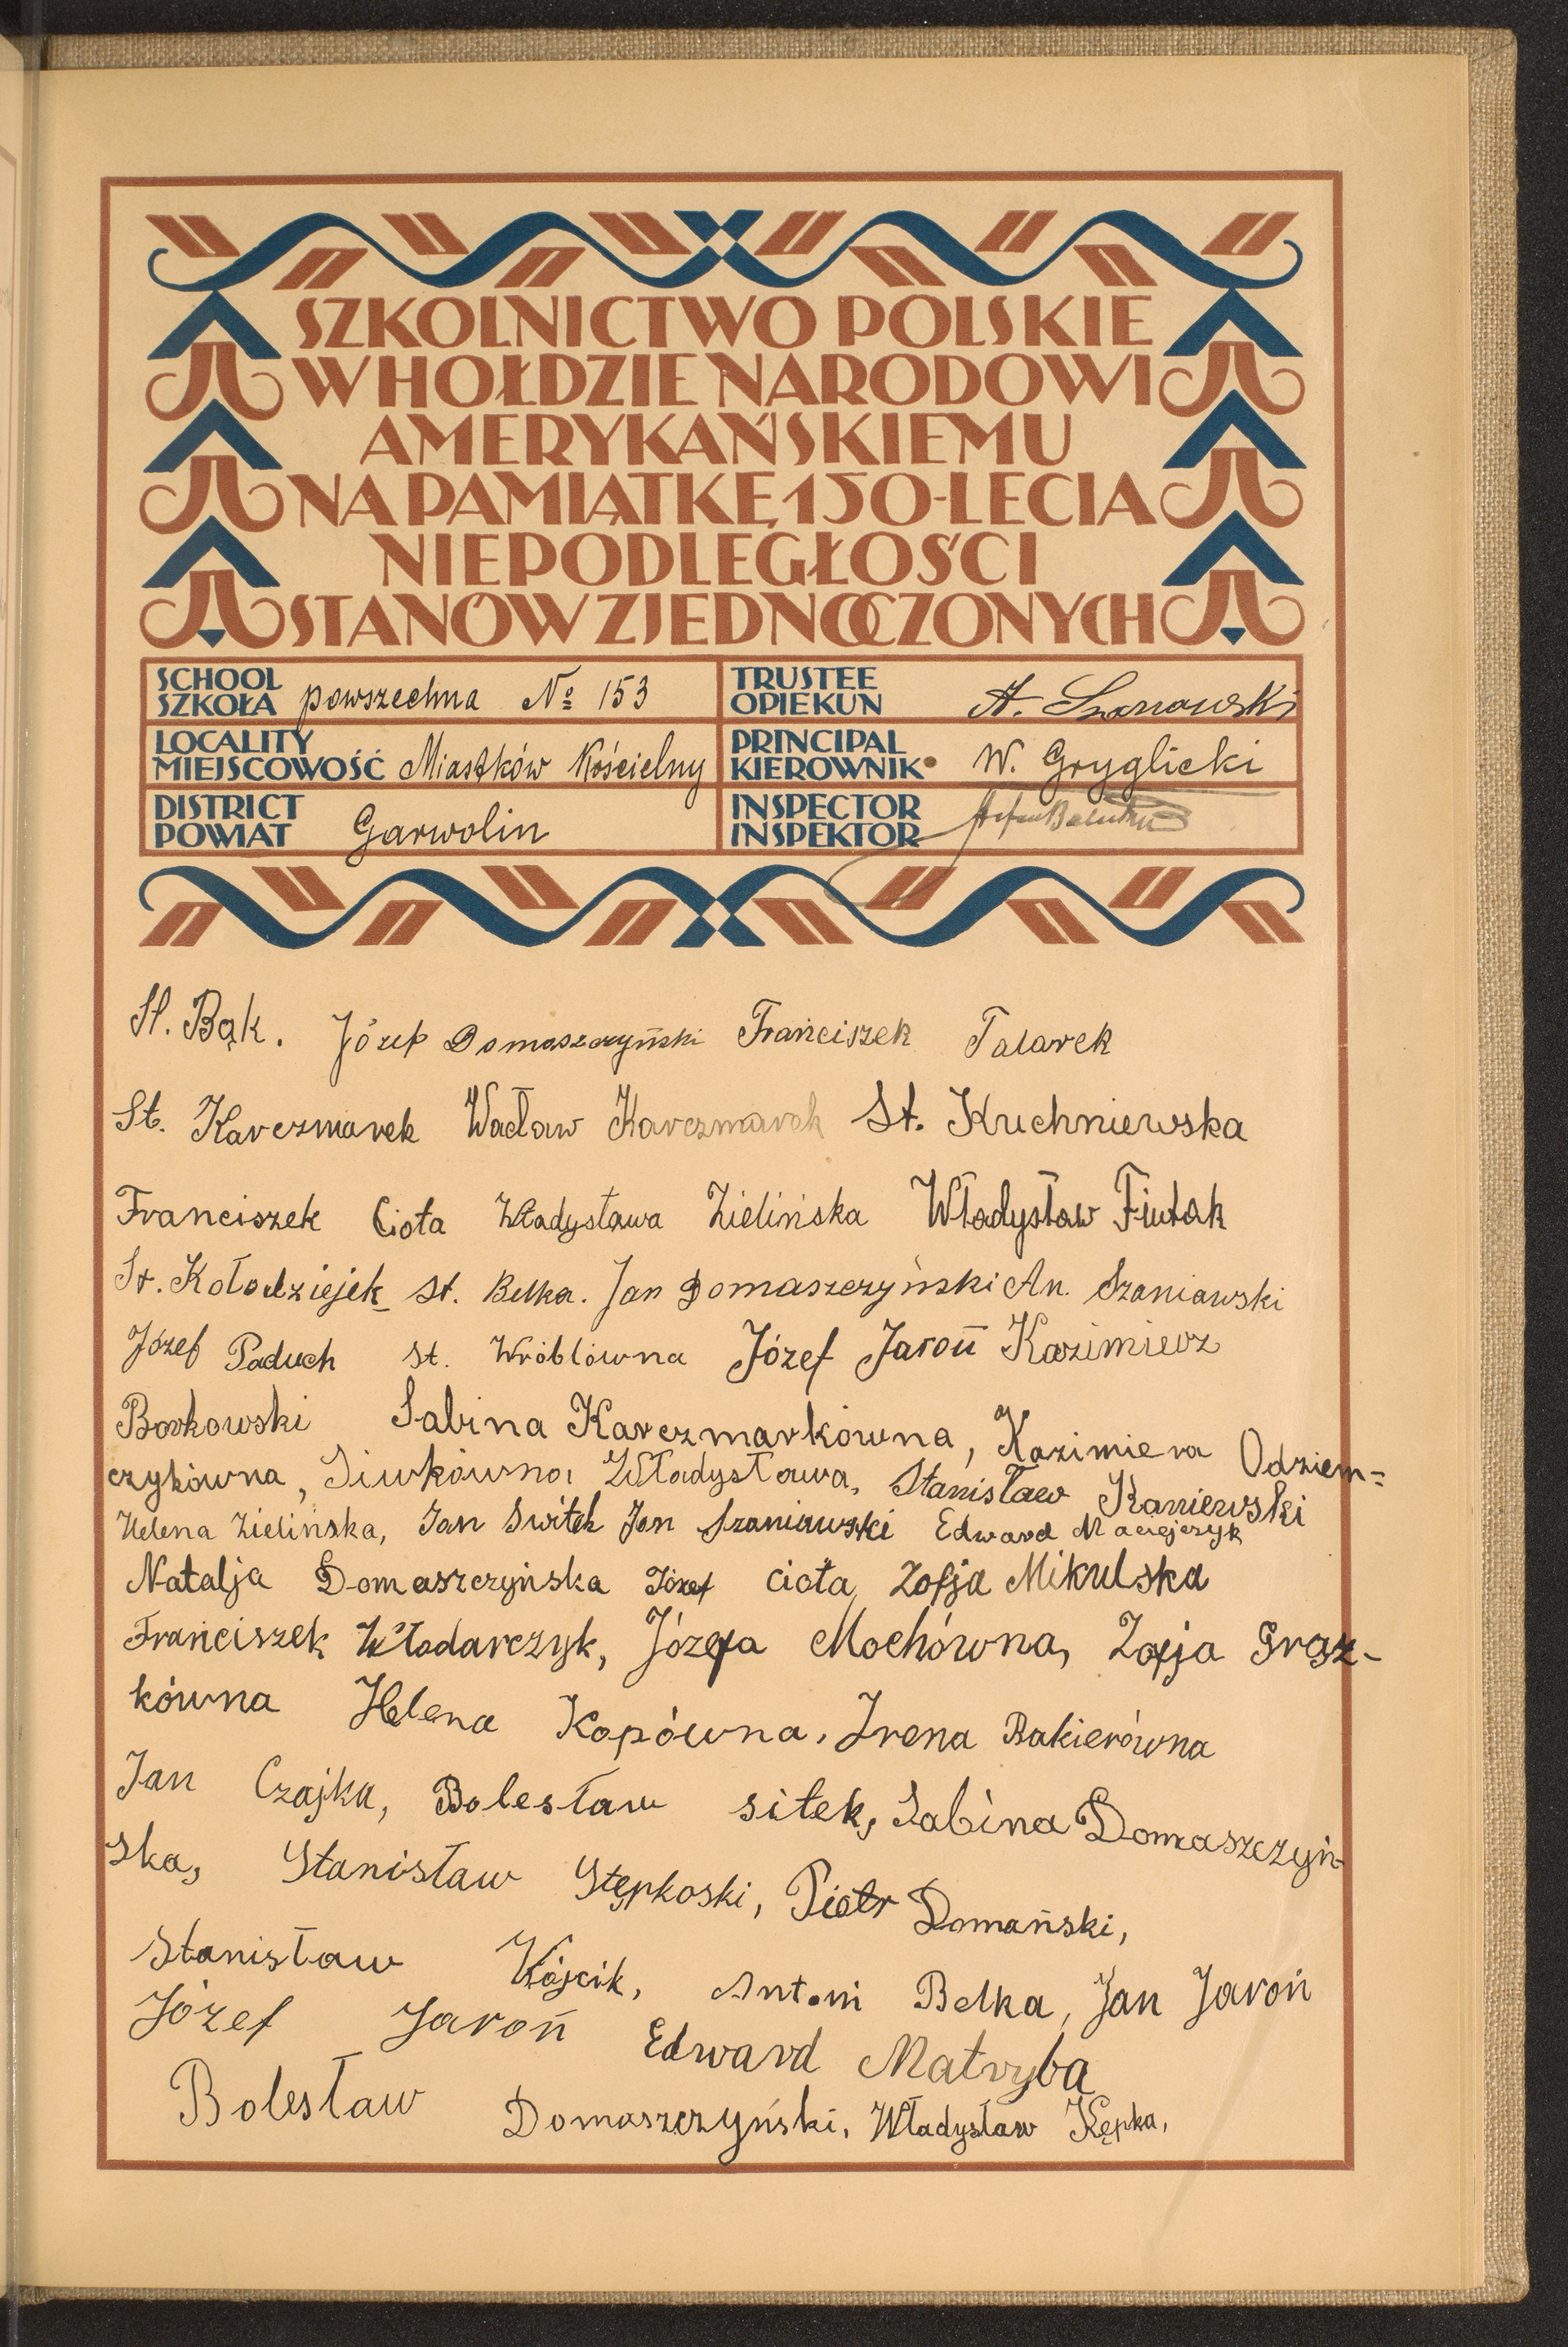 SZKOLNICTWO POLSKIE
W HOŁDZIE NARODOWI
AMERYKAŃSKIEMU
NA PAMIĄTKĘ 150-LECIA
NIEPODLEGŁOŚCI
STANÓW ZJEDNOCZONYCH
SCHOOL
SZKOŁA powszechna № 153
TRUSTEE
OPIEKUN A.
LOCALITY
MIEJSCOWOŚĆ Miastków Kościelny
PRINCIPAL
KIEROWNIK W. Gryglicki
DISTRICT
POWIAT Garwolin
INSPECTOR
INSPEKTOR
St. Bąk. Józef Domaszczyński Frańciszek Talarek
St. Karczmarek Wacław Karczmarek St. Kuchniewska
Franciszek Ciota Władysława Zielińska Władysław Fiutak
St. Kołodziejek St. Belka. Jan Domaszczyński An. Szaniawski
Józef Paduch St. Wróblówna Józef Jaroń Kazimierz
Borkowski Sabina Karczmarkówna, Kazimiera Odziem=
czykówna, Siwkówna, Władysława, Stanisław Kaniewski
Helena Zielińska, Jan Switek Jan Szaniawski Edward Maciejczyk
Natalja Domaszczyńska Józef Ciota, Zofja Mikulska
Frańciszek Włodarczyk, Józefa Mochówna, Zofja Grąz-
kówna Helena Kopówna, Irena Bakierówna
Jan Czajka, Bolesław sitek, Sabina Domaszczyń-
ska, Stanisław Stępkoski, Piotr Domański,
Stanisław Wójcik, Antoni Belka, Jan Jaroń
Józef Jaroń Edward Matryba
Bolesław Domaszczyński, Władysław Kępka,